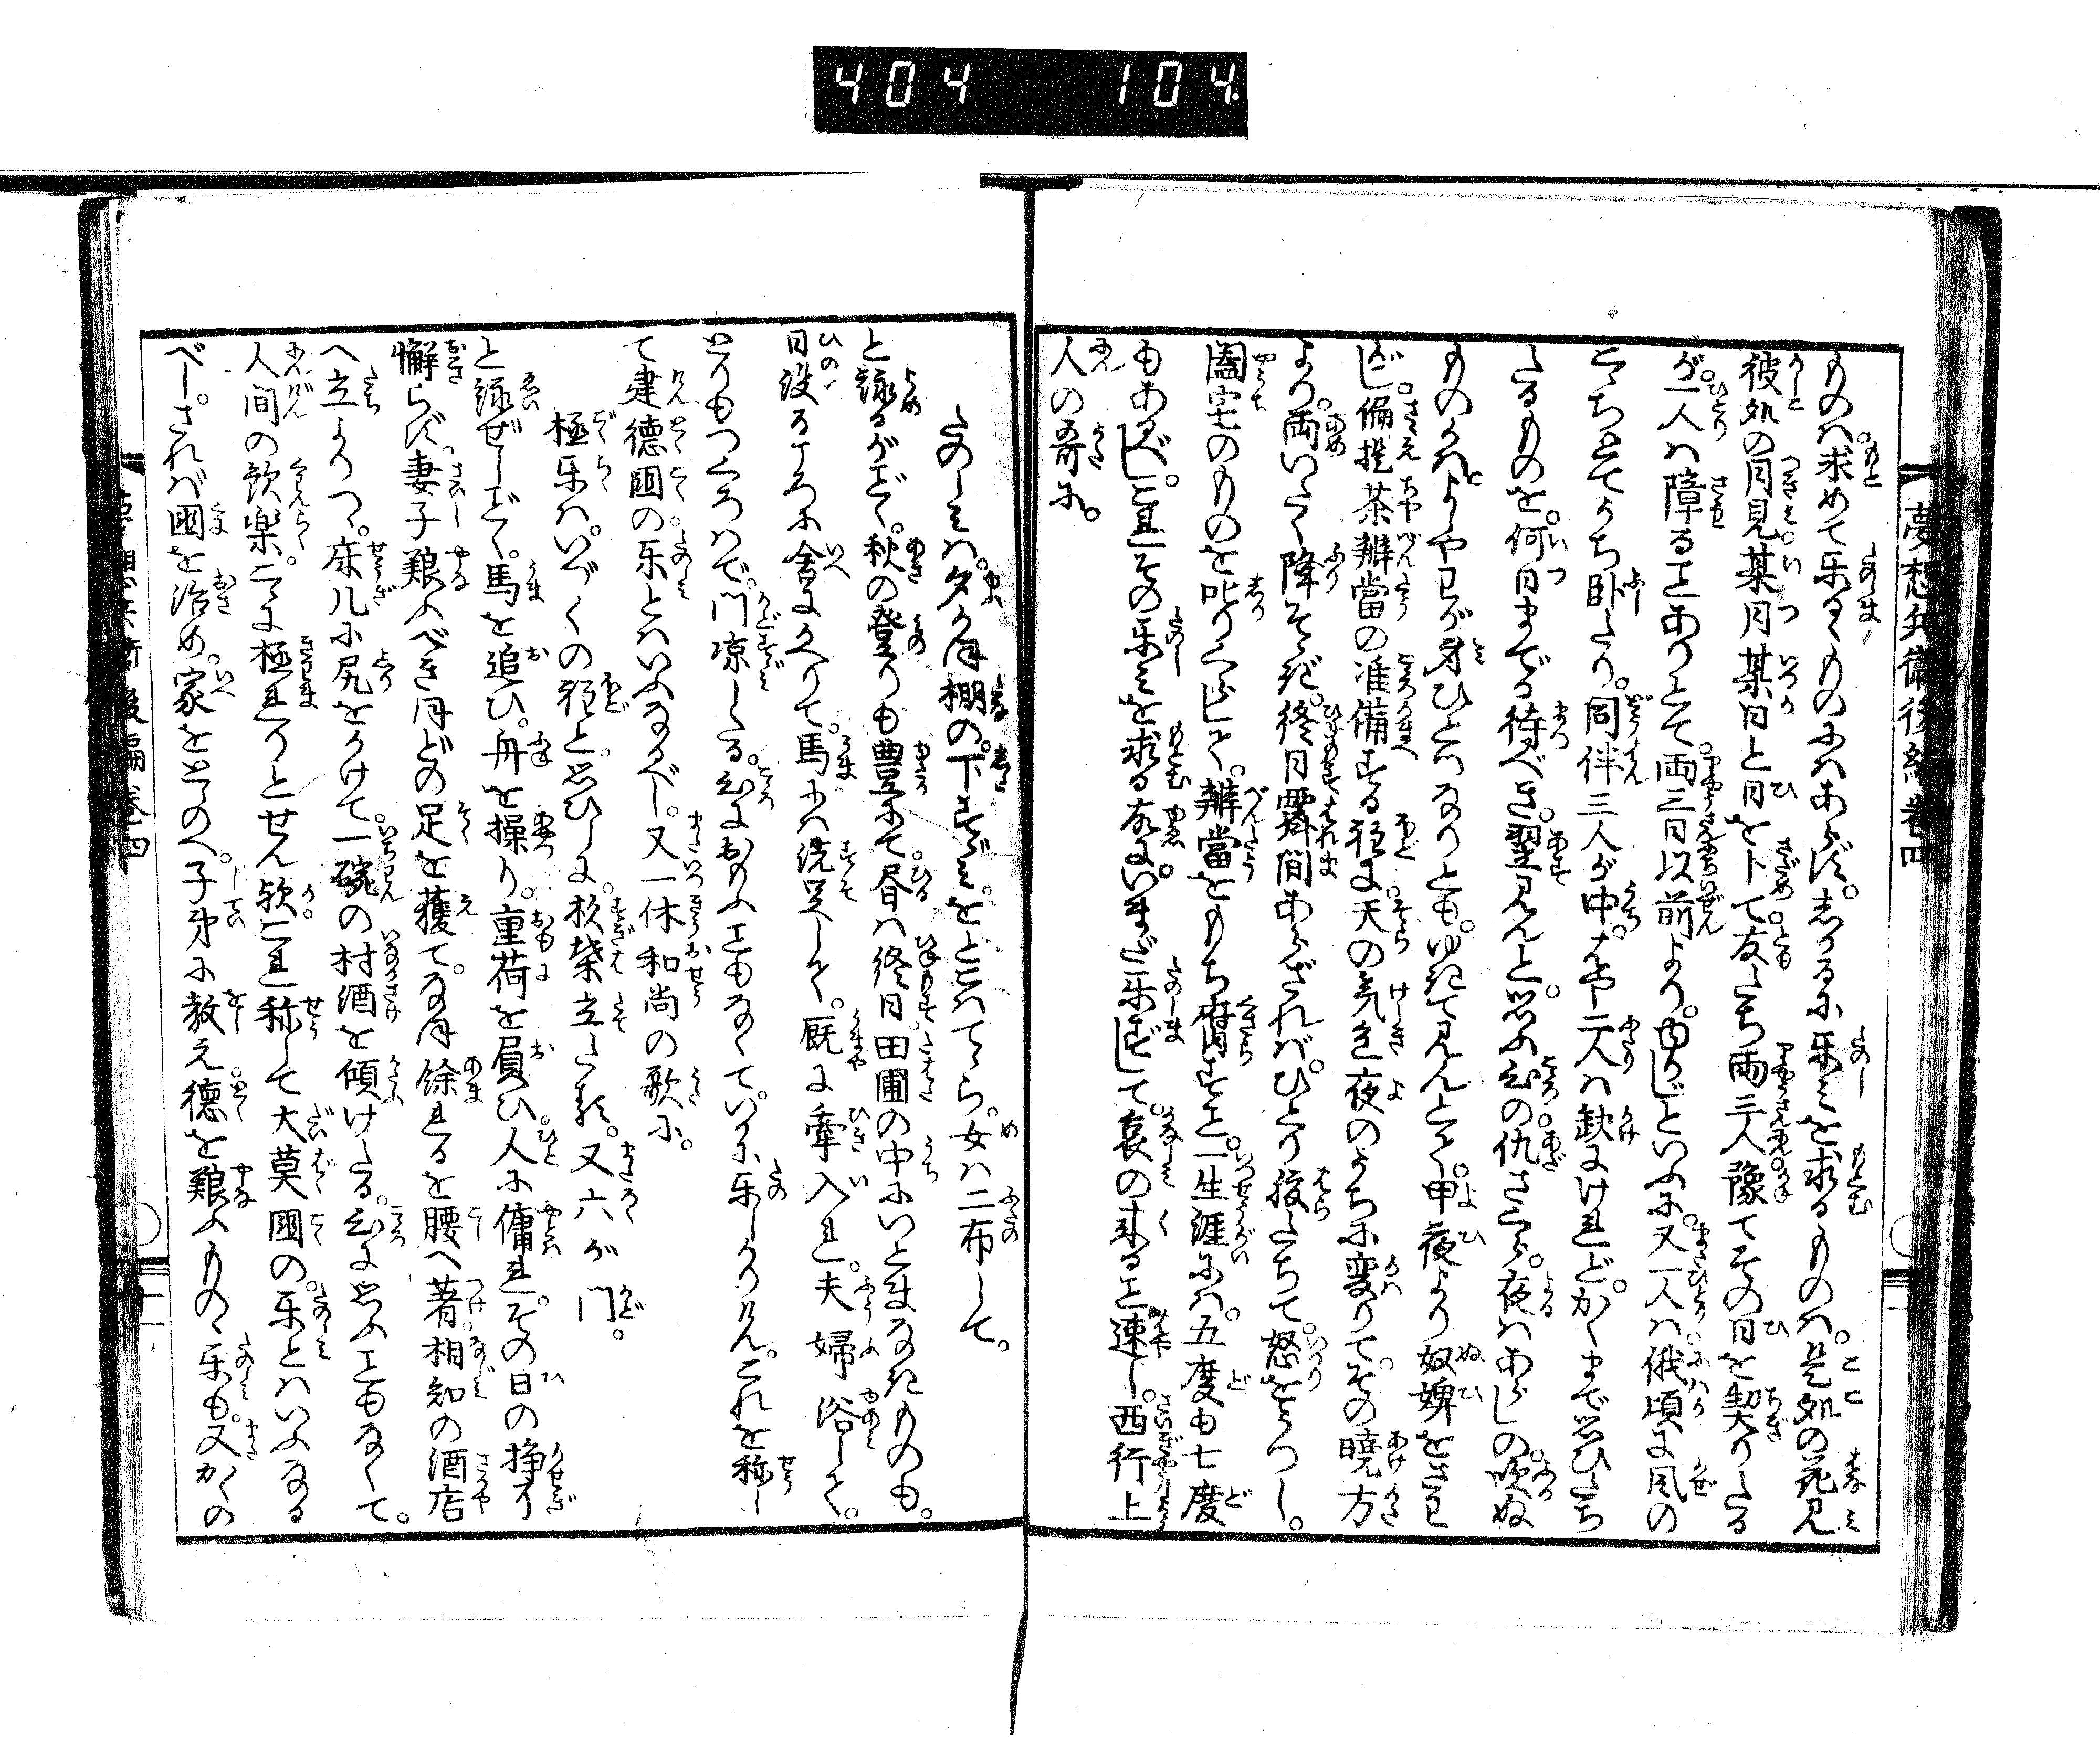 404 104
夢想兵衛後編巻四
ものハ。求めて楽むものにハあらず。しかるに楽みを求るものハ。是処の花見
彼処の月見。某月某日と日を卜て。友だち両三人豫てその日を契りたる
が。一人ハ障ることありとて。両三日以前より。ゆかじといふに。又一人ハ俄頃に風の
こゝちとてうち臥たり。同伴三人が中。はや二人ハ缺にけれど。かくまで思ひたち
たるものを。何日まで待べき。翌見んと。思ふ心の仇さくら。夜ハあらしの吹ぬ
ものかハ。よしやわが身ひとつなりとも。ゆきて見んとて。甲夜より奴婢をさわ
がし。偏提茶辨當の准備する程に。天の気色夜のうちに変りて。その暁方
より。雨いたく降そゝぎ。終日霽間あらざれば。ひとり腹たちて。怒をうつし。
闔宅のものを叱りくらして。辨當をもち腐すこと。一生涯にハ。五度も七度
もあるべし。これその楽みを求る故に。いまだ楽ずして。哀の来ること速し。西行上
人の哥に。
たのしみハ。夕がほ棚の。下すゞみ。をとこハてゝら。女ハ二布して。
と詠るがごとく。秋の登りも豊にて。昼ハ終日。田圃の中にいとまなきものも。
日没るころに舎にかへりて。馬にハ洗足して。厩に牽入れ。夫婦浴して。
とりもつくろハで。門凉したる。心におもふこともなくて。いかに楽しかりけん。これを称し
て建徳国の。楽とハいふなるべし。又一休和尚の歌に。
極楽ハ。いづくの程と。思ひしに。杉葉立たる。又六が門。
と詠ぜしごとく。馬を追ひ。舟を操り。重荷を負ひ。人に傭れ。その日の挣り
懈らず。妻子養ふべきほどの足を獲て。なほ餘れるを腰へ著。相知の酒店
へ立よりつゝ。床几に尻をかけて。一碗の村酒を傾けたる。心に思ふこともなくて。
人間の歓楽。こゝに極れりとせん欤。これ称して大莫国の。楽とハいふなる
べし。されバ国を治め。家をとゝのへ。子弟に教え。徳を養ふものゝ楽も。又かくの
夢想兵衛後編巻四